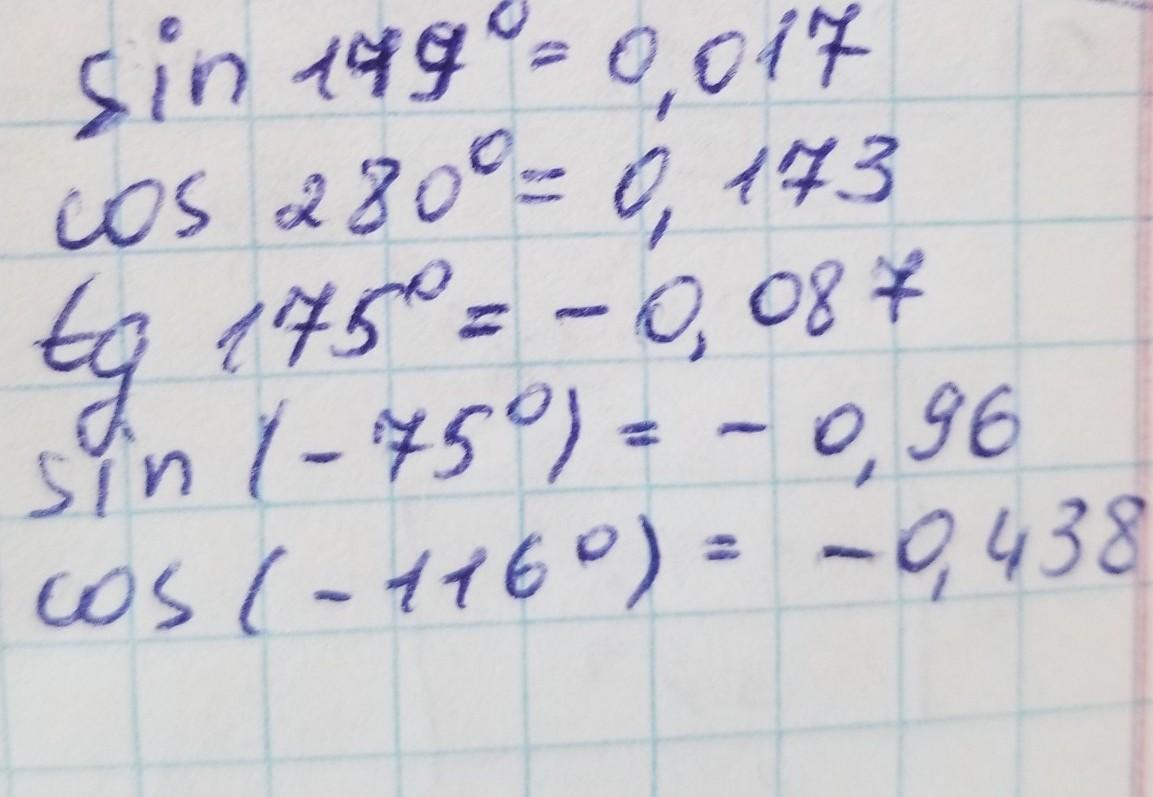 sin 179⁰ = 0,017
cos 280⁰ = 0,173
tg 175⁰ = - 0,087
sin (- 75⁰) = - 0,96
cos (- 116⁰) = - 0,438